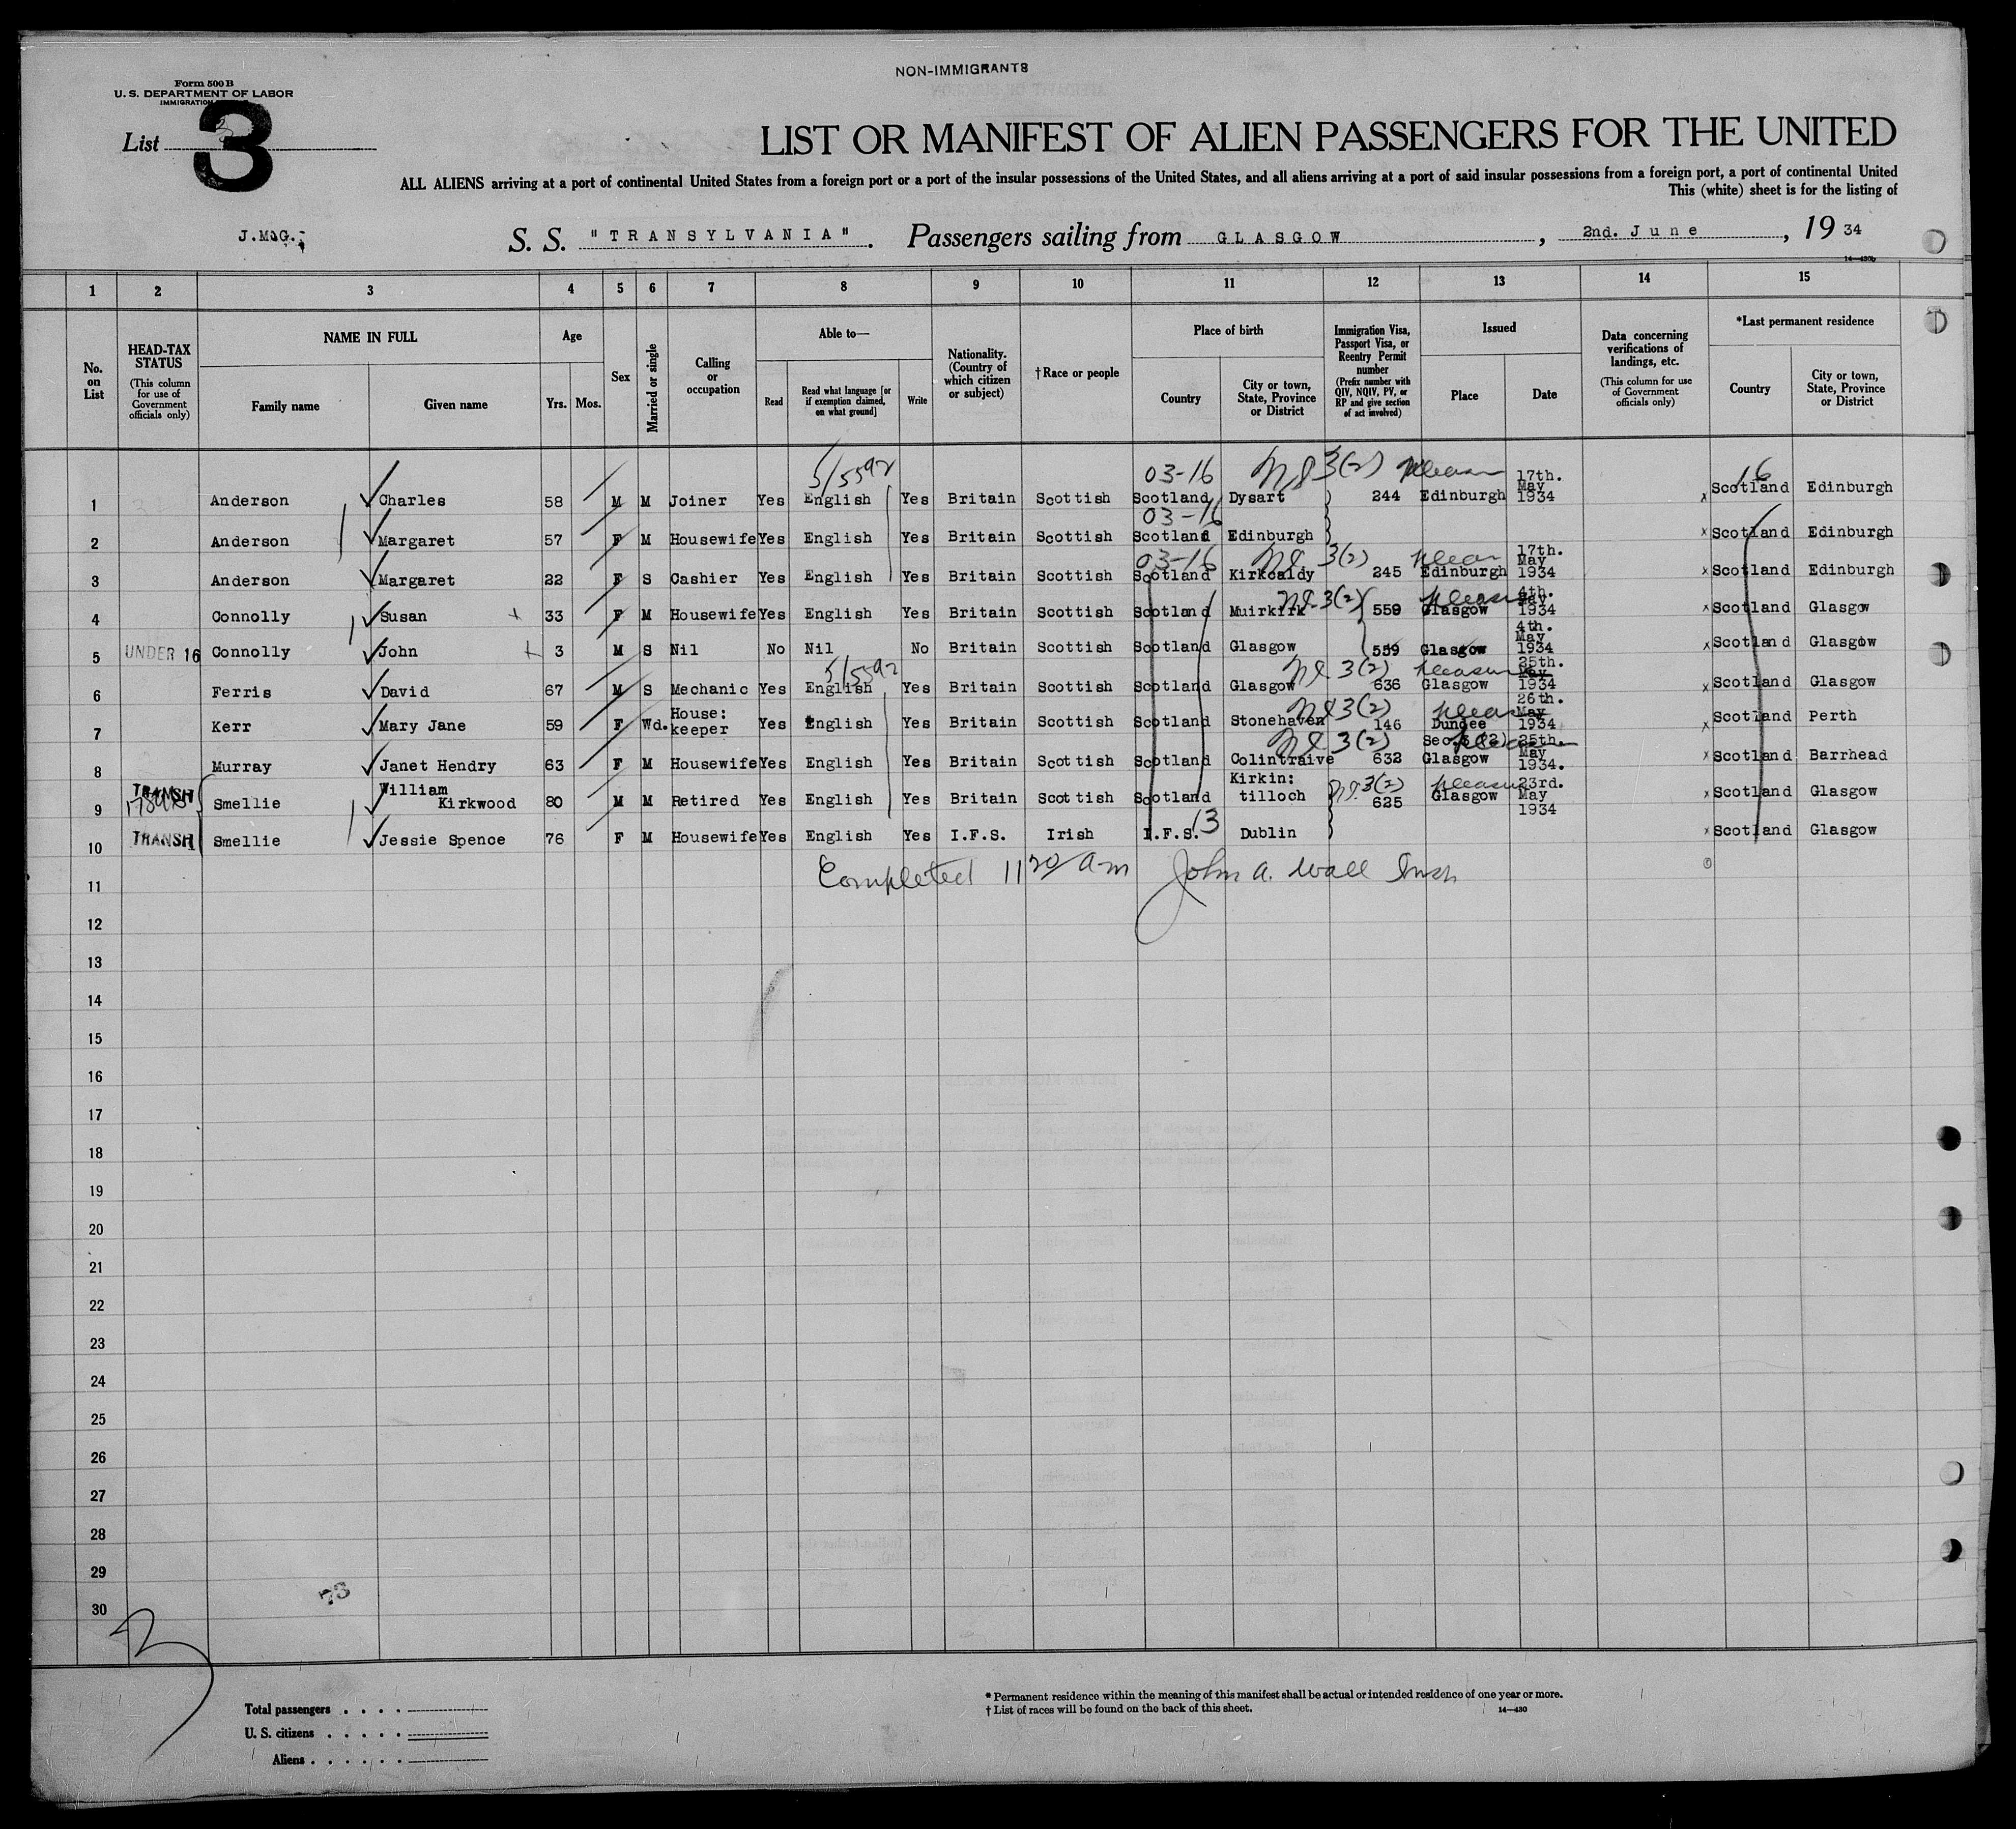 NON-IMMIGRANTS
Form 500 B
U. S. DEPARTMENT OF LABOR
IMMIGRATION
List 3
LIST OR MANIFEST OF ALIEN PASSENGERS FOR THE UNITED
ALL ALIENS arriving at a port of continental United States from a foreign port or a port of the insular possessions of the United States, and all aliens arriving at a port of said insular possessions from a foreign port, a port of continental United
This (white) sheet is for the listing of
J.McG.
S. S. "TRANSYLVANIA". Passengers sailing from GLASGOW, 2nd. June, 19 34
14—430b
1 2 3 4 5 6 7 8 9 10 11 12 13 14 15
No. on List
HEAD-TAX STATUS (This column for use of Government officials only)
NAME IN FULL
Family name Given name
Age
Yrs. Mos.
Sex
Married or single
Calling or occupation
Able to—
Read Read what language [or if exemption claimed, on what ground] Write
Nationality. (Country of which citizen or subject)
†Race or people
Place of birth
Country City or town, State, Province or District
Immigration Visa, Passport Visa, or Reentry Permit number (Prefix number with QIV, NQIV, PV, or RP and give section of act involved)
Issued
Place Date
Data concerning verifications of landings, etc. (This column for use of Government officials only)
*Last permanent residence
Country City or town, State, Province or District
5/5592 03-16 3(2) 16
1 Anderson Charles 58 M M Joiner Yes English Yes Britain Scottish Scotland Dysart 244 Edinburgh 17th. May 1934 Scotland Edinburgh
03-16
2 Anderson Margaret 57 F M Housewife Yes English Yes Britain Scottish Scotland Edinburgh Scotland Edinburgh
03-16 3(2)
3 Anderson Margaret 22 F S Cashier Yes English Yes Britain Scottish Scotland Kirkcaldy 245 Edinburgh 17th. May 1934 Scotland Edinburgh
3(2)
4 Connolly Susan 33 F M Housewife Yes English Yes Britain Scottish Scotland Muirkirk 559 Glasgow 4th. May 1934 Scotland Glasgow
5 UNDER 16 Connolly John 3 M S Nil No Nil No Britain Scottish Scotland Glasgow 559 Glasgow 4th. May 1934 Scotland Glasgow
5/5592 3(2) pleasure
6 Ferris David 67 M S Mechanic Yes English Yes Britain Scottish Scotland Glasgow 636 Glasgow 25th. May 1934 Scotland Glasgow
3(2)
7 Kerr Mary Jane 59 F Wd. House: keeper Yes English Yes Britain Scottish Scotland Stonehaven 146 Dundee 26th. May 1934 Scotland Perth
3(2) Sec.3 (2)
8 Murray Janet Hendry 63 F M Housewife Yes English Yes Britain Scottish Scotland Colintraive 632 Glasgow 25th. May 1934. Scotland Barrhead
3(2)
9 TRANSH Smellie William Kirkwood 80 M M Retired Yes English Yes Britain Scottish Scotland Kirkin: tilloch 625 Glasgow 23rd. May 1934 Scotland Glasgow
10 TRANSH Smellie Jessie Spence 76 F M Housewife Yes English Yes I.F.S. Irish I.F.S. 13 Dublin Scotland Glasgow
11 Completed 11 20 am John A. Wall Insp
12
13
14
15
16
17
18
19
20
21
22
23
24
25
26
27
28
29
30
73
Total passengers
U. S. citizens
Aliens
* Permanent residence within the meaning of this manifest shall be actual or intended residence of one year or more.
† List of races will be found on the back of this sheet. 14—430